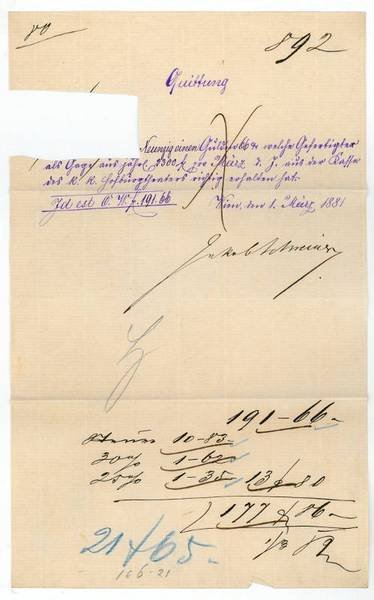 80
892
Quittung
Neunzig einen Gulden 66 kr welche Gefertigter
als Gage aus jährl. 2300 f. pro März d. J. aus der Kassa
des k. k. Hofburgtheaters richtig erhalten hat.
Id est Ö. W. f. 191.66
Wien, den 1. März 1881
Jakob Schreiner
191-66
10-83
30%
25% 1-35 13 f 80
177 f 86
89
21 f 65
166-21